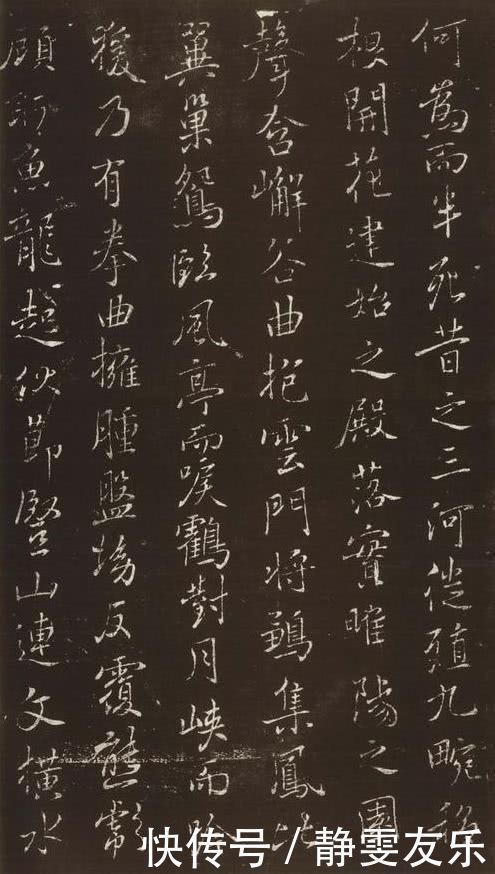 何為而半死昔之三河徙殖九畹移
根開花建始之殿落實睢陽之園
聲含嶰谷曲抱雲門將鶵集鳳比
翼巢鴛臨風亭而唳鶴對月峽而吟
猨乃有拳曲擁腫盤坳反覆熊彪
顧盼魚龍起伏節竪山連文橫水
快传号 / 静雯友乐